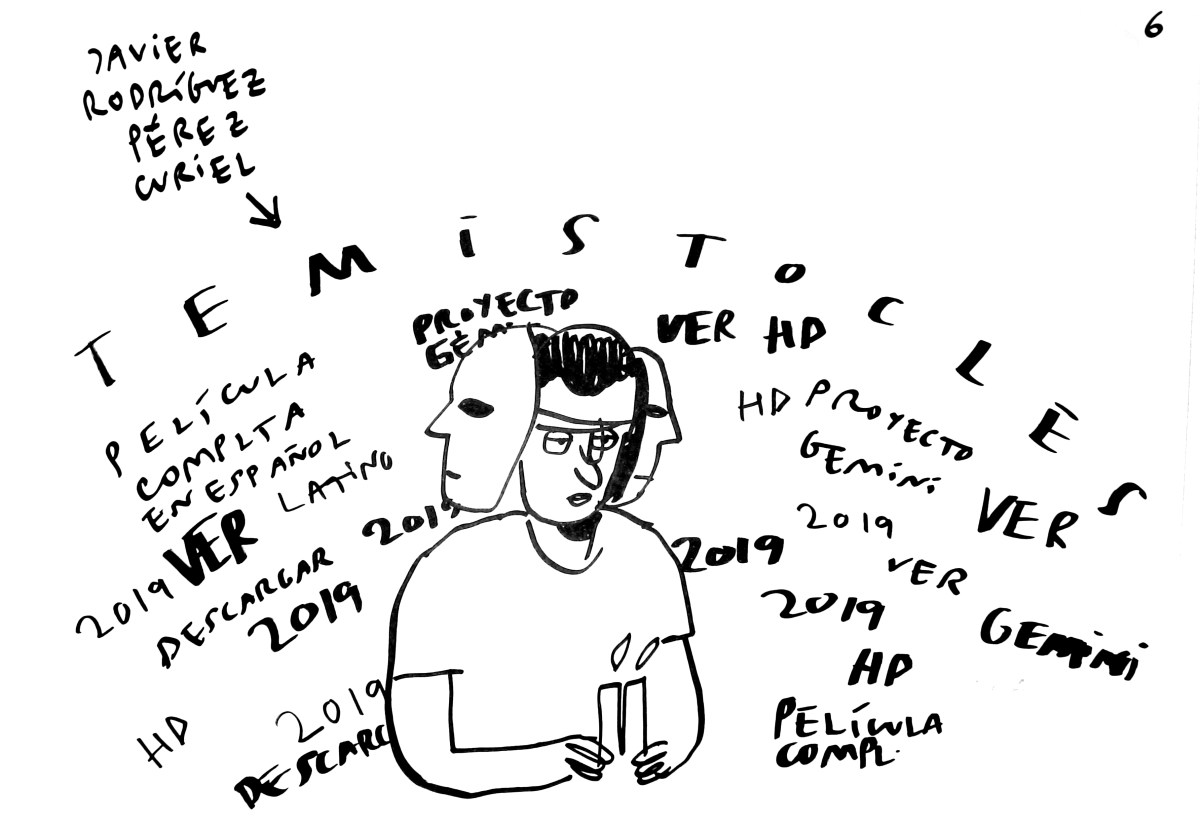 6
JAVIER
RODRÍGUEZ
PÉREZ
CURIEL
TEMÍSTOCLĒS
PROYECTO
GÉMI
VER HD
PELÍCULA
COMPLTA
EN ESPAÑOL
LATINO
VER
2019
DESCARGAR
2019
2019
HD
2019
DESCARG
HD PROYECTO
GEMINI
2019
VER
VER
2019
2019
GEMINI
HD
PELÍCULA
COMPL.